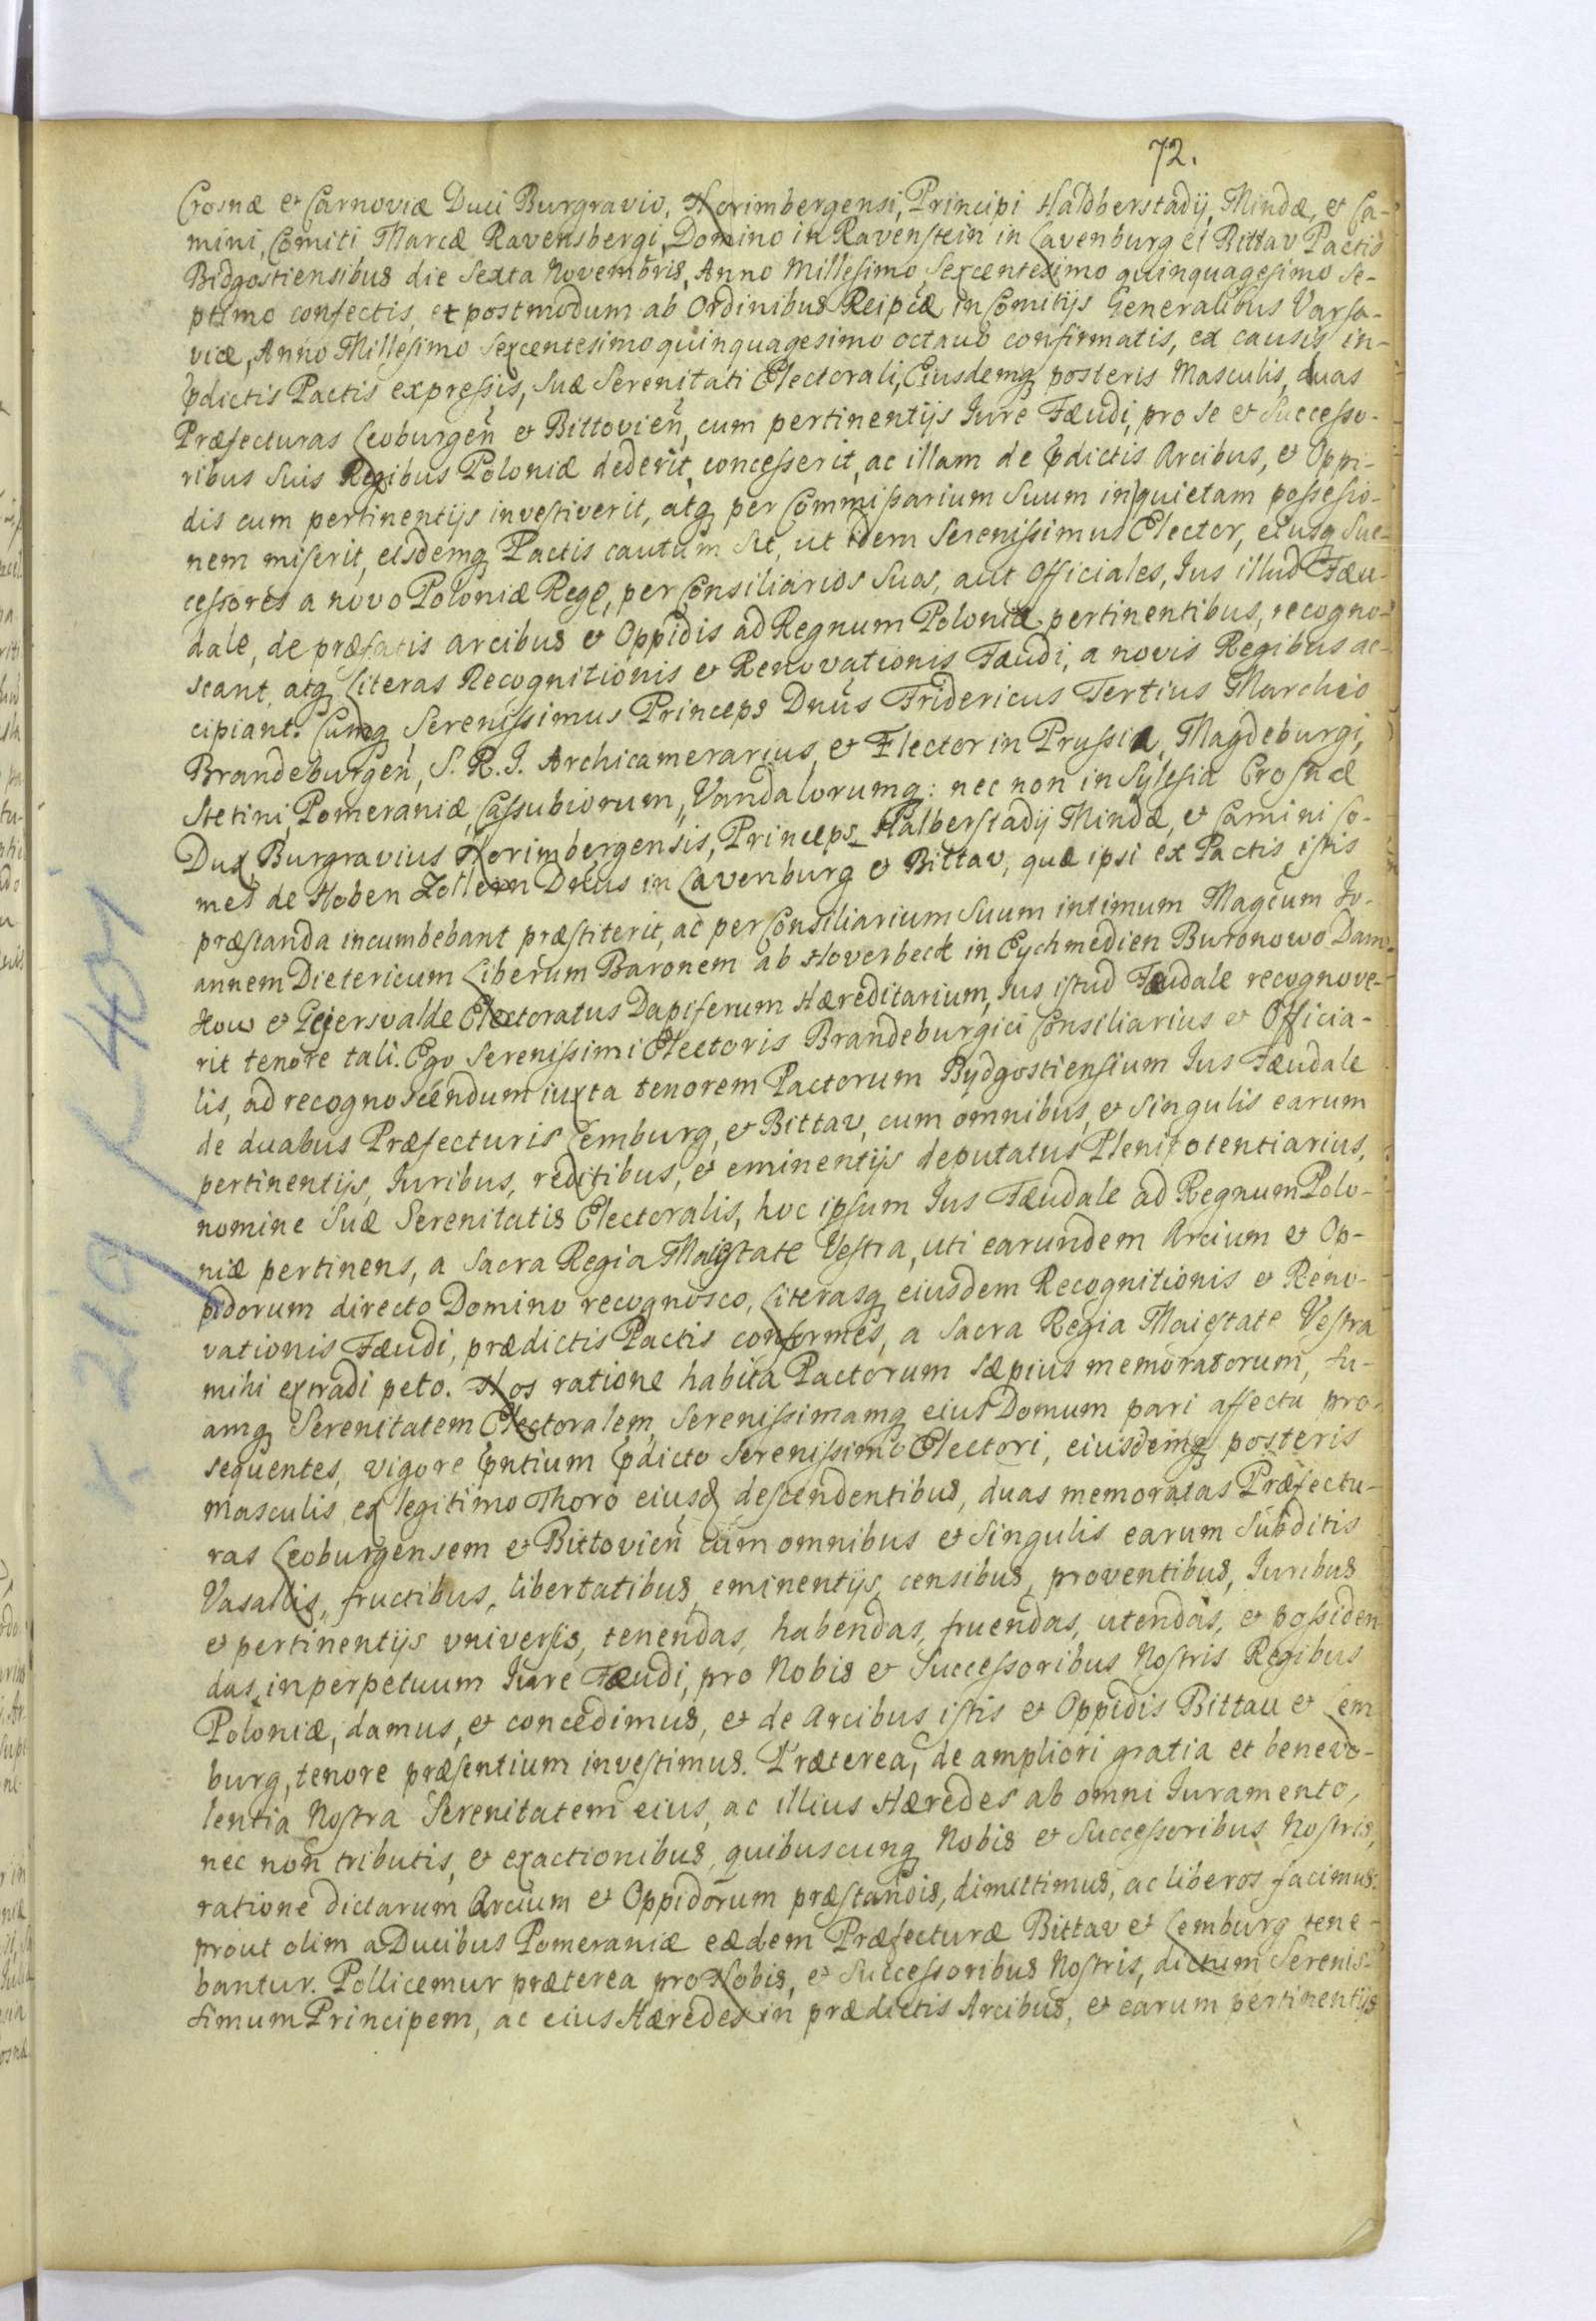 72.
Crosnæ et Carnoviæ Duci Burgravio, Norimbergensi, Principi Haldberstadij, Mindæ, et Ca-
mini, Comiti Marcæ Ravensbergi, Domino in Ravenstein in Lavenburg et Bittav Pactis
Bidgostiensibus die Sexta Novembris, Anno Millesimo Sexcentesimo quinquagesimo se-
ptimo confectis, et postmodum ab Ordinibus Reipcæ in Comitijs Generalibus Varsa-
viæ, Anno Millesimo Sexcentesimo quinquagesimo octavo confirmatis, ex causis in-
pdictis Pactis expressis, Suæ Serenitati Electorali, Eiusdemq posteris Masculis, duas
Præfecturas Leoburgeñ et Bittovieñ, cum pertinentijs Iure Fæudi, pro se et Successo-
ribus Suis Regibus Poloniæ dederit, concesserit, ac illam de pdictis Arcibus, et Oppi-
dis cum pertinentijs investiverit, atq per Commissarium Suum in quietam possessio-
nem miserit, eisdemq Pactis cautum sit, ut idem Serenissimus Elector, eiusq Suc-
cessores a novo Poloniæ Rege, per Consiliarios Suos, aut Officiales, Ius illud Fæu-
dale, de præfatis Arcibus et Oppidis ad Regnum Poloniæ pertinentibus, recogno-
scant, atq Literas Recognitionis et Renovationis Fæudi, a novis Regibus ac-
cipiant. Cumq Serenissimus Princeps Dnus Fridericus Tertius Marchio
Brandeburgeñ, S. R. I. Archicamerarius, et Elector in Prussia, Magdeburgi,
Stetini, Pomeraniæ, Cassubiorum, Vandalorumq: nec non in Sylesia Crosnæ
Dux, Burgravius Norimbergensis, Princeps Halberstadij Mindæ, et Camini Co-
mes de Hohen Zollern Dnus in Lavenburg et Bittav, quæ ipsi ex Pactis istis
præstanda incumbebant præstiterit, ac per Consiliarium Suum intimum Magcum Jo-
annem Dietericum Liberum Baronem ab Hoverbeck in Eychmedien Buronowo Dam-
How et Gejersvalde Electoratus Dapiferum Hæreditarium, Ius istud Fæudale recognove-
rit tenore tali. Ego Serenissimi Electoris Brandeburgici Consiliarius et Officia-
lis, ad recognoscendum iuxta tenorem Pactorum Bydgostiensium Ius Fæudale
de duabus Præfecturis Lemburg, et Bittav, cum omnibus, et singulis earum
pertinentijs, Iuribus, reditibus, et eminentijs deputatus Plenipotentiarius,
nomine Suæ Serenitatis Electoralis, hoc ipsum Ius Fæudale ad Regnum Polo-
niæ pertinens, a Sacra Regia Maiestate Vestra, uti earundem Arcium et Op-
pidorum directo Domino recognosco, Literasq eiusdem Recognitionis et Reno-
vationis Fæudi, prædictis Pactis conformes, a Sacra Regia Maiestate Vestra
mihi extradi peto. Nos ratione habita Pactorum sæpius memoratorum, su-
amq Serenitatem Electoralem, Serenissimamq eius Domum pari affectu pro-
sequentes, vigore pntium pdicto Serenissimo Electori, eiusdemq posteris
masculis ex legitimo Thoro eiusd descendentibus, duas memoratas Præfectu-
ras Leoburgensem et Bittovieñ cum omnibus et singulis earum Subditis
Vasallis, fructibus, libertatibus, eminentijs, censibus, proventibus, Iuribus
et pertinentijs universis, tenendas, habendas, fruendas, utendas, et possiden
das, inperpetuum Iure Fæudi, pro Nobis et Successoribus Nostris Regibus
Poloniæ, damus, et concedimus, et de Arcibus istis et Oppidis Bittau et Lem
burg, tenore præsentium investimus. Præterea, de ampliori gratia et benevo-
lentia Nostra Serenitatem eius, ac illius Hæredes ab omni Iuramento,
nec non tributis, et exactionibus, quibuscunq Nobis et Successoribus Nostris,
ratione dictarum Arcium et Oppidorum præstandis, dimittimus, ac liberos facimus.
prout olim a Ducibus Pomeraniæ eædem Præfecturæ Bittav et Lemburg tene-
bantur. Pollicemur præterea pro Nobis, et Successoribus Nostris, dictum Serenis-
simum Principem, ac eius Hæredes in prædictis Arcibus, et earum pertinentijs